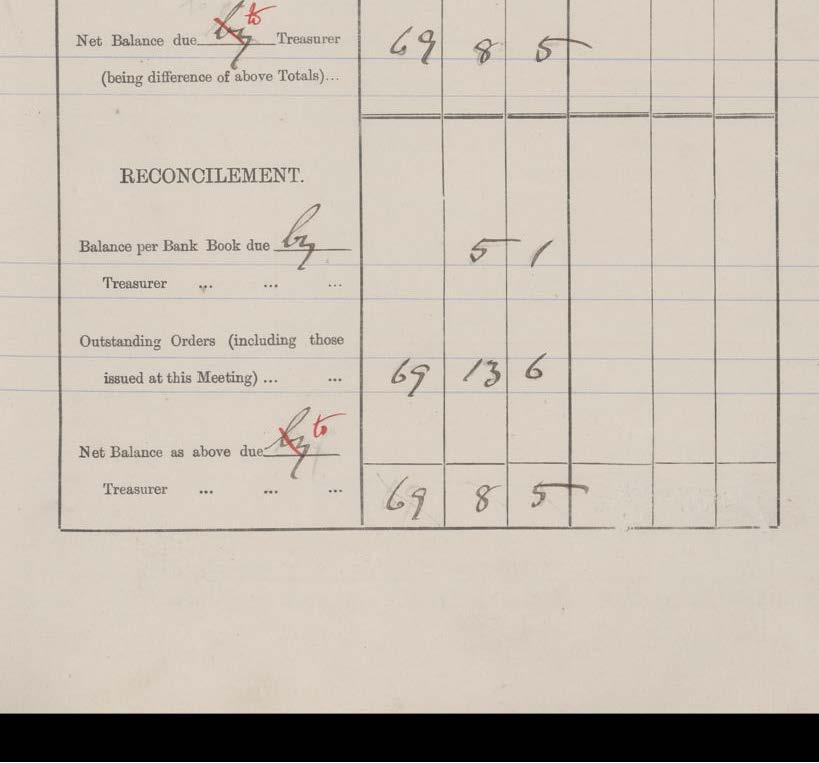 Net Balance due by to Treasurer 69 8 5
(being difference of above Totals)...
RECONCILEMENT.
Balance per Bank Book due by 5 1
Treasurer ... ... ...
Outstanding Orders (including those
issued at this Meeting) ... ... 69 13 6
Net Balance as above due by to
Treasurer ... ... ... 69 8 5